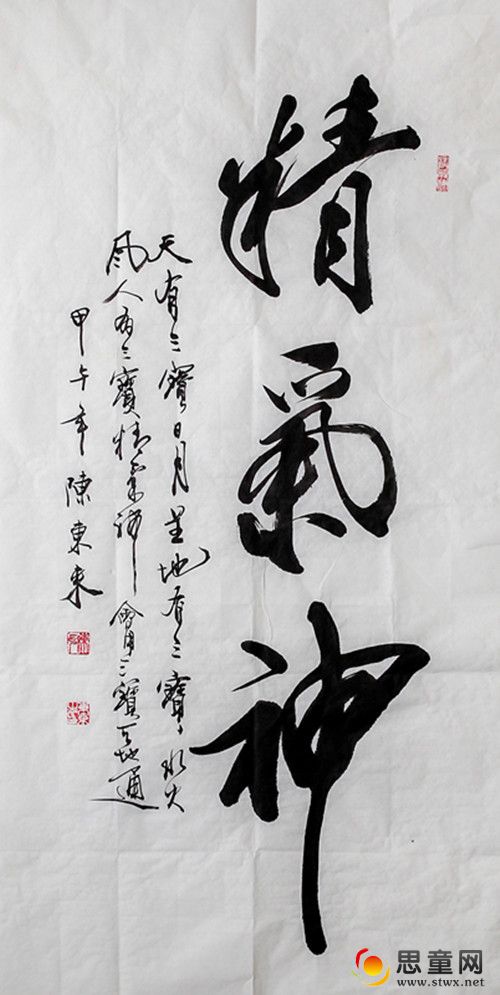 精氣神
天有三寶日月星地有三寶水火
風人有三寶精氣神會用三寶天地通
甲午年陳東來
思童网
www.stwx.net